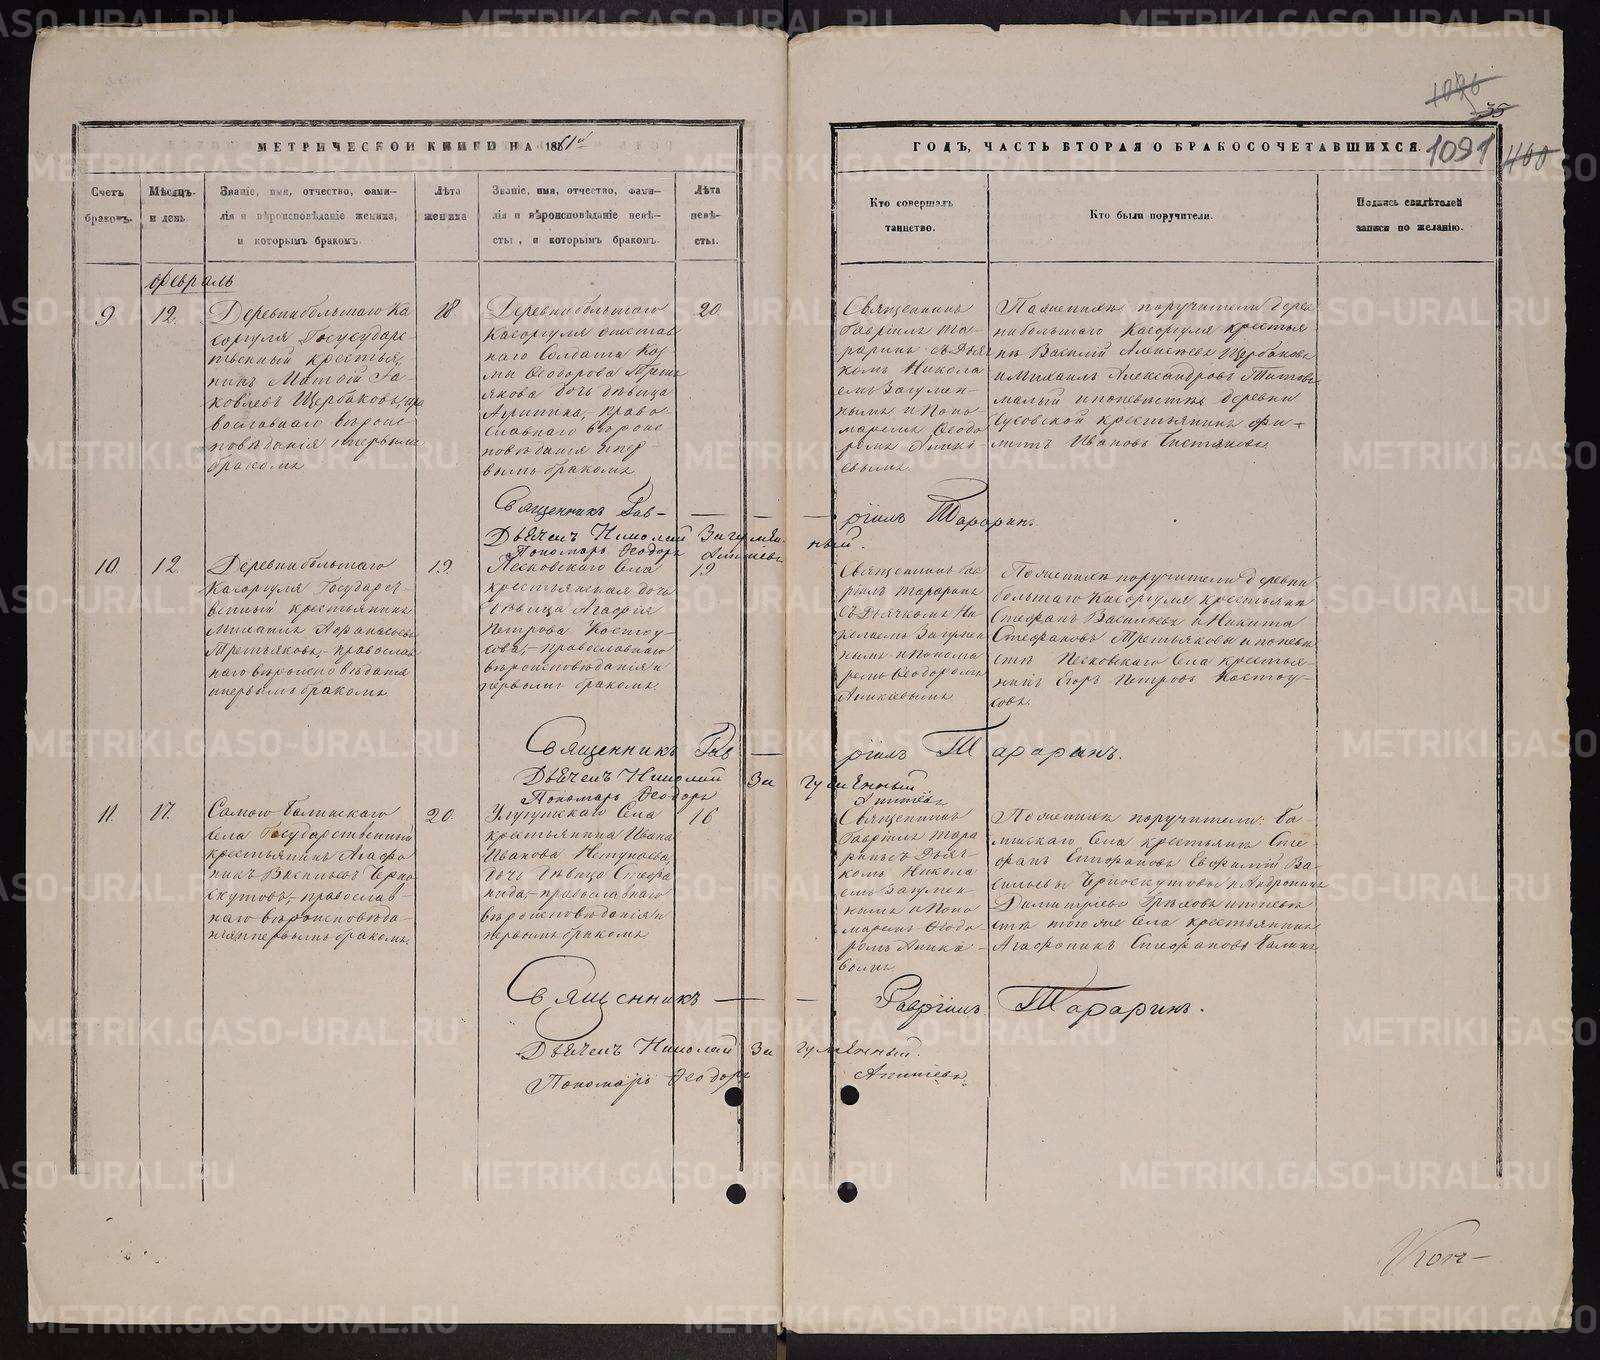 МЕТРИЧЕСКОЙ КНИГИ НА 1861й
ГОДЪ, ЧАСТЬ ВТОРАЯ О БРАКОСОЧЕТАВШИХСЯ.
1091
Счетъ браковъ.
Мѣсяцъ и день
Званіе, имя, отчество, фами-
лія и вѣроисповѣданіе жениха,
и которымъ бракомъ.
Лѣта жениха
Званіе, имя, отчество, фами-
лія и вѣроисповѣданіе невѣ-
сты, и которымъ бракомъ.
Лѣта невѣ-
сты.
Кто совершалъ
таинство.
Кто были поручители.
Подпись свидѣтелей
записи по желанію.
Февраль
9
12.
Деревни большаго Ка
соргуля Государс-
твенный крестья-
нинъ Матвій Іа-
ковлевъ Щербаковъ, пра
вославнаго вѣроис
повѣданія и первымъ
бракомъ
18.
Деревни большаго
Касоргуля отстав
наго Солдата Коз
мы Ѳеодорова Треть
якова дочь дѣвица
право-
славнаго вѣроис
повѣданія и пер
вымъ бракомъ
20.
Священникъ
Гавріилъ Та-
раринъ съ Дьяч
комъ Никола
емъ Загумен-
нымъ и Поно-
маремъ Ѳеодо
ромъ Аники-
евымъ
По женихѣ поручители дерев
ни большаго Касоргуля крестья
не Василій Алексѣевъ Щербаковъ
и Михаилъ Александровъ Титовъ
малый и по невѣстѣ деревни
крестьянинъ Фи-
липъ Ивановъ
Священникъ Гав- ріилъ Тараринъ.
Дьячекъ Николай Загумен- ный.
Пономарь Ѳеодоръ Аникіевъ
10.
12.
Деревни большаго
Касоргуля Государст-
венный крестьянинъ
Михаилъ Афанасьевъ
Третьяковъ, православ
наго вѣроисповѣданія
и первымъ бракомъ
19.
Песковскаго Села
крестьянская дочь
дѣвица Агафія
Петрова Костоу-
сова, православнаго
вѣроисповѣданія и
первымъ бракомъ.
19
Священникъ Гав
ріилъ Тараринъ
съ Дьячкомъ Ни
колаемъ Загумен
нымъ и Понома
ремъ Ѳеодоромъ
Аникіевымъ
По женихѣ поручители деревни
большаго Касоргуля крестьяне
Стефанъ Васильевъ и Никита
Стефановъ Третьяковы и по невѣ
стѣ Песковскаго Села крестья-
нинъ Егоръ Петровъ Костоу-
совъ.
Священникъ Гав- ріилъ Тараринъ.
Дьячекъ Николай За гуменный
Пономарь Ѳеодоръ Аникіевъ
11.
17.
Самого Баlинскаго
Села Государственный
крестьянинъ Агафо
никъ Васильевъ Черно
скутовъ, православ-
наго вѣроисповѣда-
нія и первымъ бракомъ.
20.
Села
крестьянина Ивана
Иванова
дочь дѣвица Стефа
нида, православнаго
вѣроисповѣданія и
первымъ бракомъ
16
Священникъ
Гавріилъ Тара
ринъ съ Дьяч-
комъ Никола
емъ Загумен-
нымъ и Поно
маремъ Ѳеодо
ромъ Аники-
евымъ
По женихѣ поручители: Ба-
Села крестьяне Сте-
фанъ Евфимій Ва-
сильевы Черноскутовы и Андроникъ
Димитріевъ и по невѣ
стѣ того же Села крестьянинъ
Агафоникъ Стефановъ
Священникъ — — Гавріилъ Тараринъ.
Дьячекъ Николай За гуменный.
Пономарь Ѳеодоръ Аникіевъ.